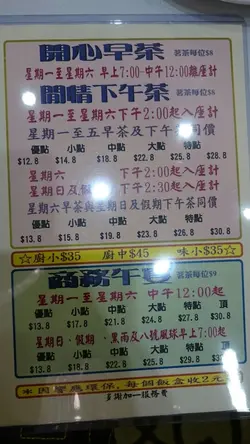 開心早茶 茗茶每位$8
星期一至星期六 早上7:00-中午12:00離座計
閒情下午茶 茗茶每位$8
星期一至星期六 下午2:00起入座計
星期一至五早茶及下午茶同價
優點 小點 中點 大點 特點
$12.8 $14.8 $18.8 $22.8 $25.8 $28.8
星期六 下午2:00起入座計
星期日及假 下午2:30起入座計
星期六早茶與星期日及假期下午茶同價
優點 小點 中點 大點 特點
$13.8 $15.8 $19.8 $23.8 $26.8 $30.8
☆廚小$35 廚中$45 味小$35☆
商務午 茗茶每位$9
星期一至星期六 中午12:00起
優點 小點 中點 大點 特點 頂
$13.8 $17.8 $21.8 $24.8 $27.8 $30.
星期日、假期、黑雨及八號風球早上7:00起
優點 小點 中點 大點 特點 頂
$13.8 $18.8 $22.8 $25.8 $29.8
環保，每個飯盒收2元
多謝加一服務費